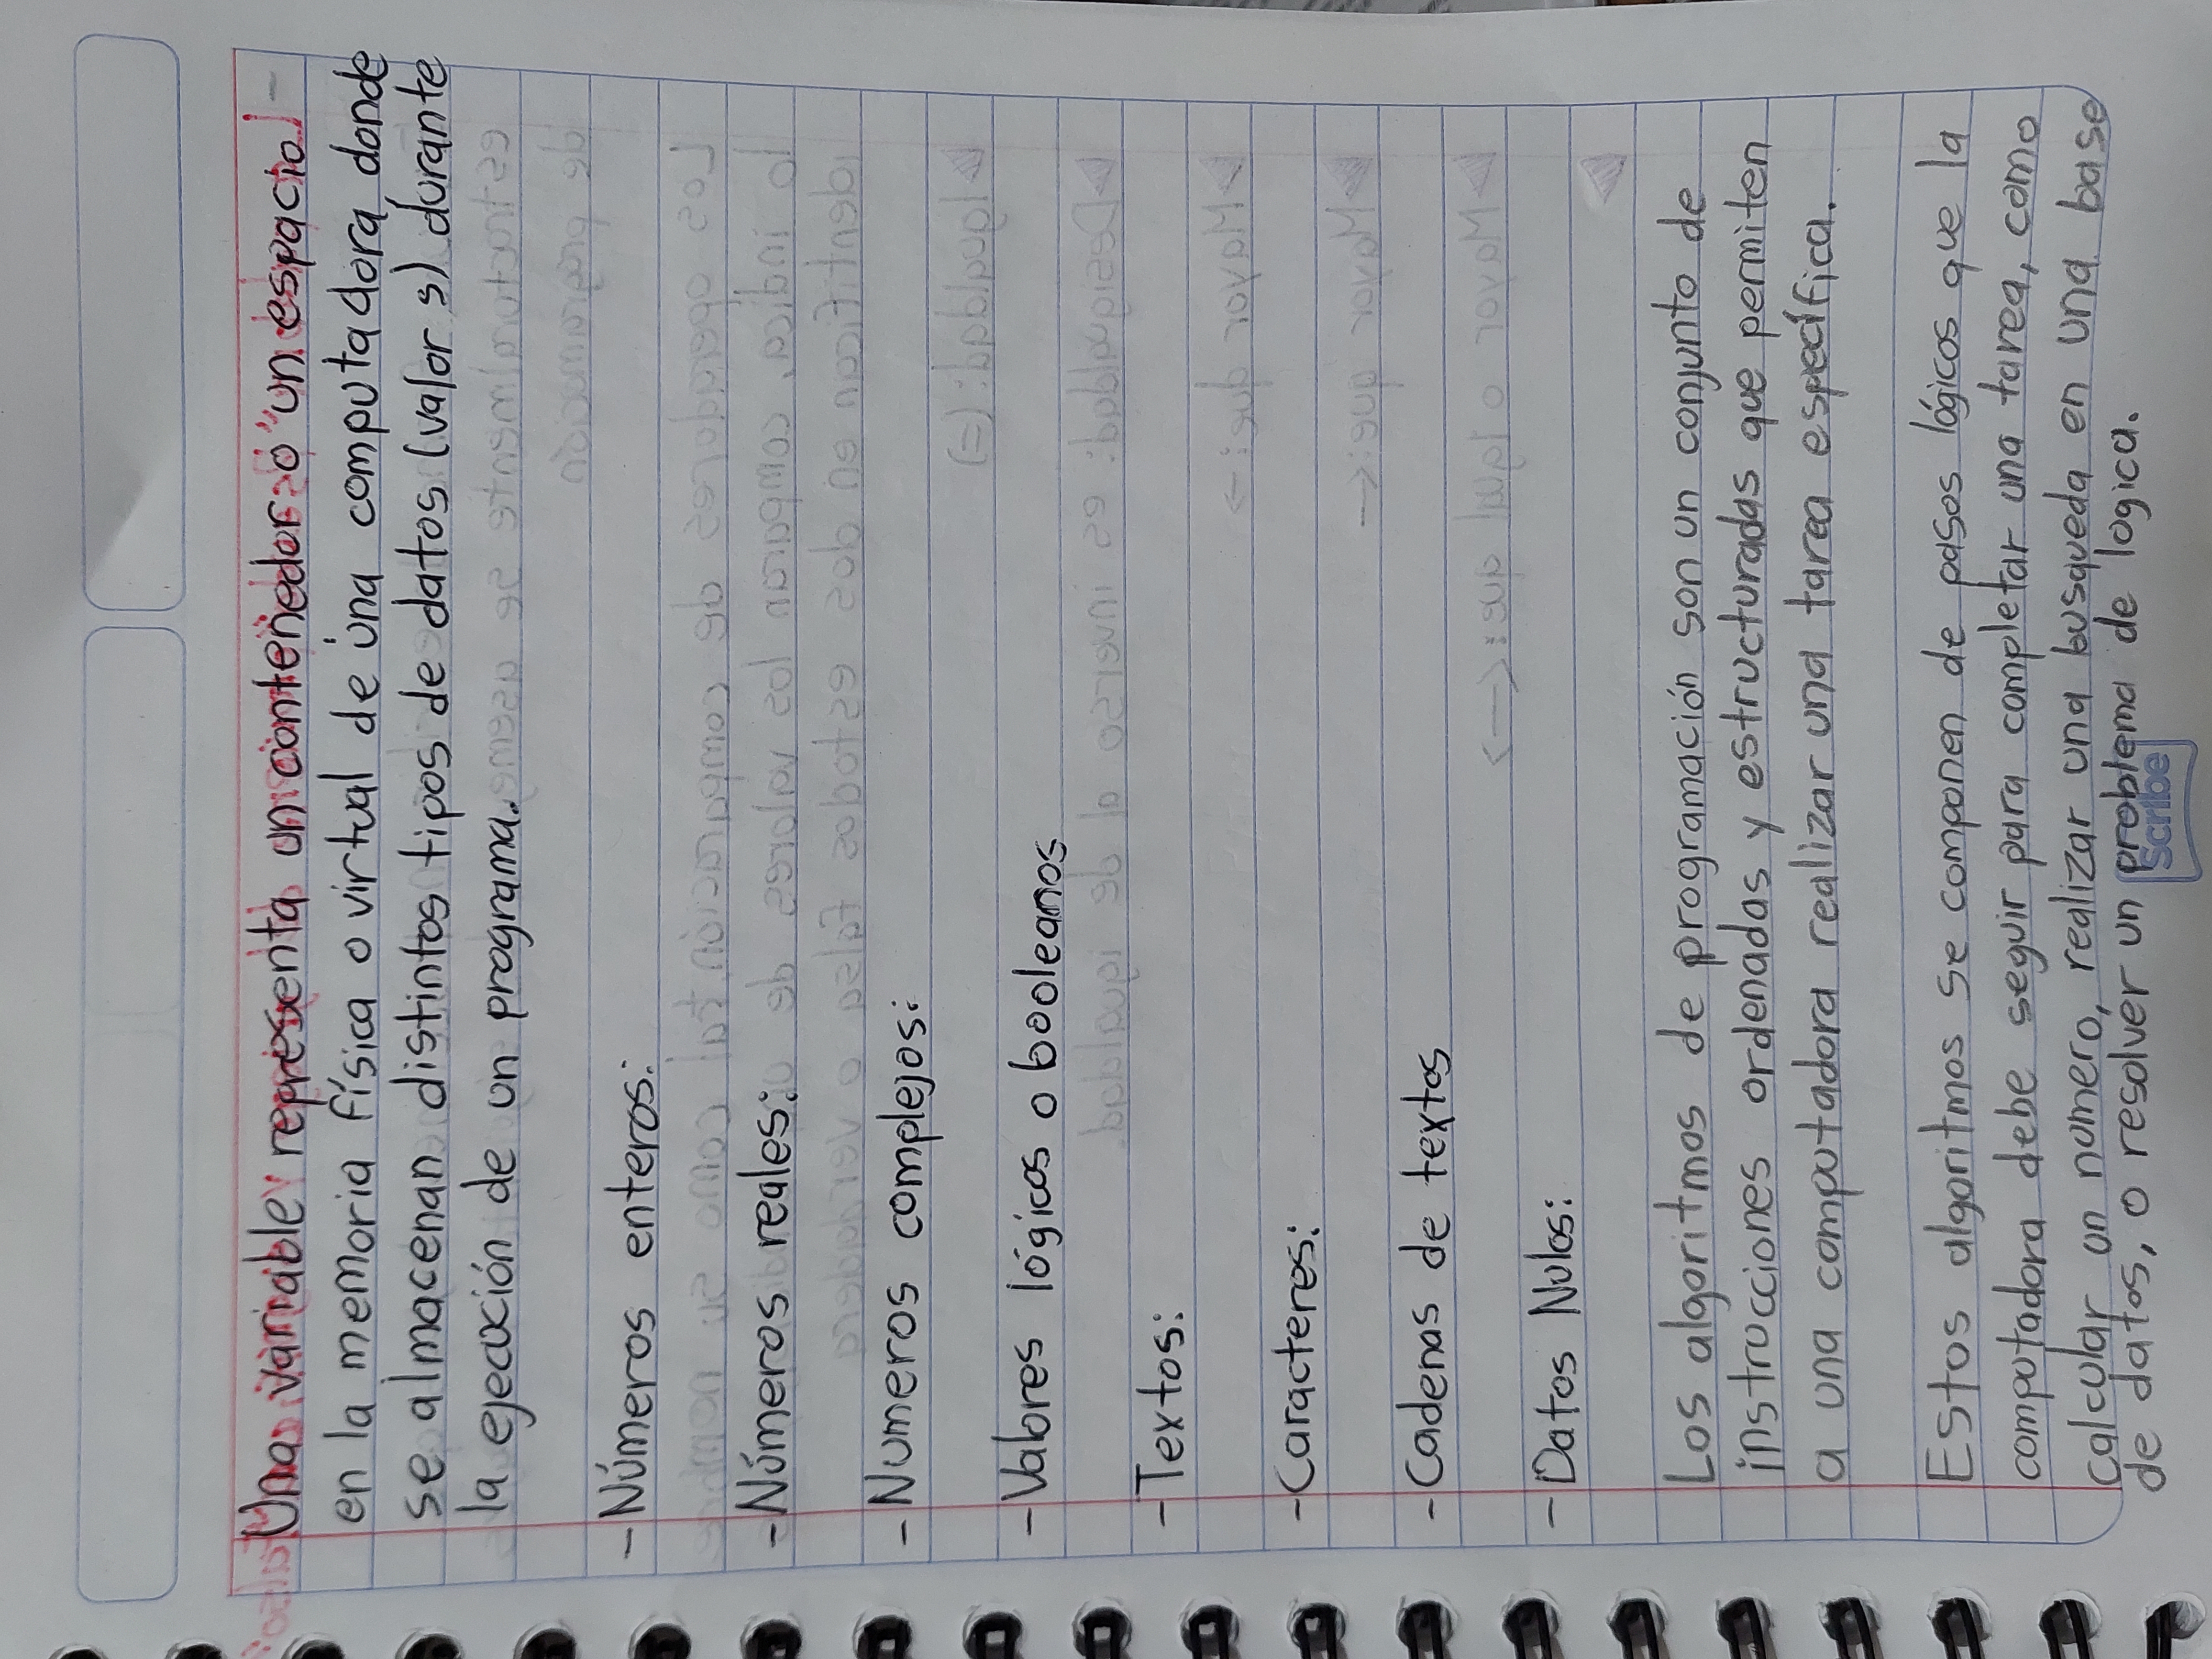 Una variable representa un contenedor o "un espacio"
en la memoria física o virtual de una computadora donde
se almacenan distintos tipos de datos (valor s) durante
la ejecución de un programa.
-Números enteros:
-Números reales:
-Numeros complejos:
-Valores lógicos o booleanos
-Textos:
-Caracteres:
-Cadenas de textos
-Datos Nulos:
Los algoritmos de programación son un conjunto de
instrucciones ordenadas y estructuradas que permiten
a una computadora realizar una tarea específica.
Estos algoritmos se componen de pasos lógicos que la
computadora debe seguir para completar una tarea, como
calcular un numero, realizar una busqueda en una base
de datos, o resolver un problema de logica.
Scribe